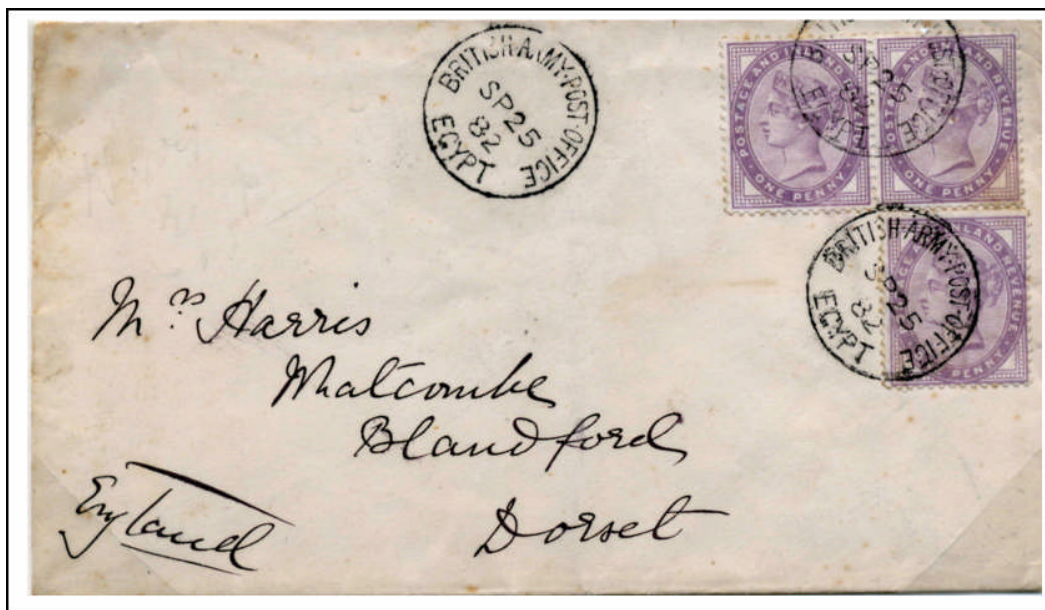 BRITISH·ARMY·POST·OFFICE
SP 25
82
EGYPT
POSTAGE AND INLAND REVENUE
ONE PENNY
POSTAGE AND INLAND REVENUE
ONE PENNY
BRITISH·ARMY·POST·OFFICE
SP 25
82
EGYPT
INLAND REVENUE
PENNY
Mrs Harris
Whatcombe
Blandford
Dorset
England